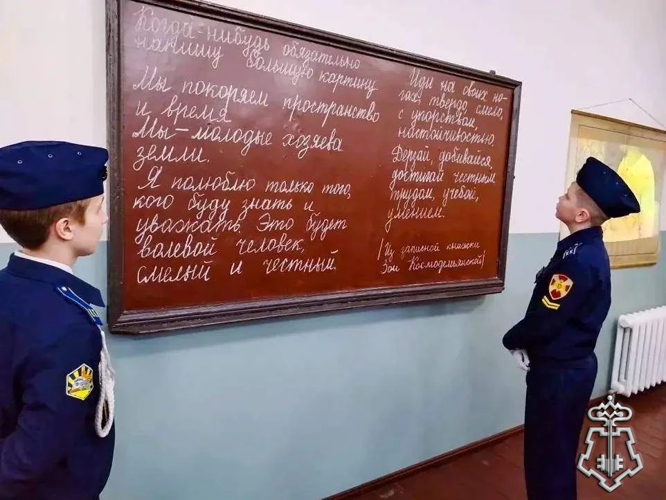 Когда-нибудь обязательно
напишу большую картину
Мы покоряем пространство
и время
Мы – молодые хозяева
земли.
Я полюблю только того,
кого буду знать и
уважать. Это будет
волевой человек,
смелый и честный.
Иди на своих но-
гах твердо, смело,
с упорством,
настойчивостью.
Дерзай, добивайся,
достигай честным
трудом, учебой,
умением.
/Из записной книжки
Зои Космодемьянской/